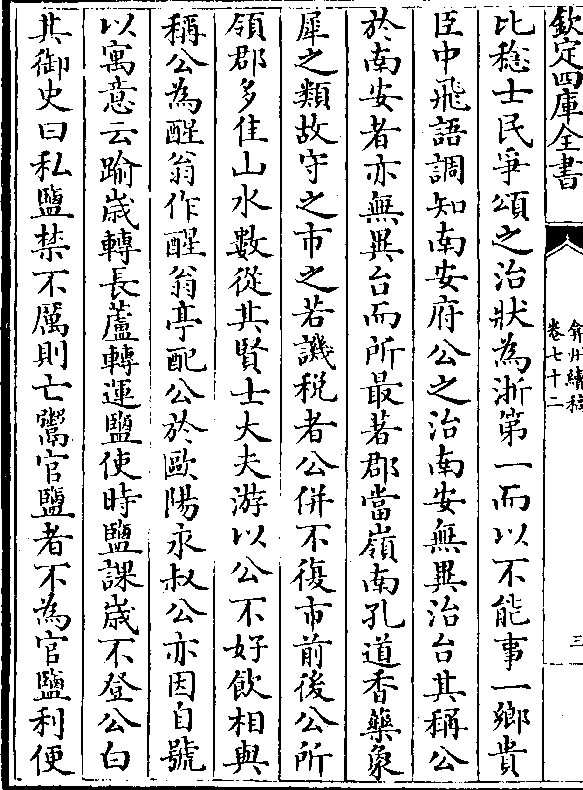 欽定四庫全書
弇州續稿
卷七十二
三
比稔士民爭頌之治狀為浙第一而以不能事一鄉貴
臣中飛語調知南安府公之治南安無異治台其稱公
於南安者亦無異台而所最著郡當嶺南孔道香藥象
犀之類故守之市之若譏税者公併不復市前後公所
領郡多佳山水數從其賢士大夫游以公不好飲相與
稱公為醒翁作醒翁亭配公於歐陽永叔公亦因自號
以寓意云踰嵗轉長蘆轉運鹽使時鹽課嵗不登公白
其御史曰私鹽禁不厲則亡鬻官鹽者不為官鹽利便